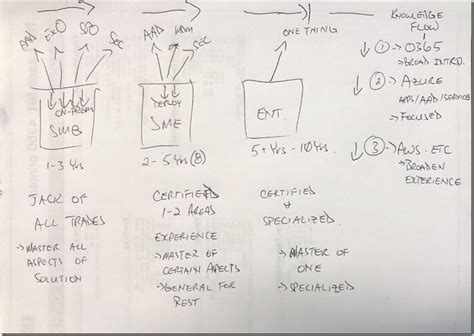 AAD EXO SPO SEC
ON-PREM
SMB
1-3 YRS
JACK OF
ALL TRADES
→ MASTER ALL
ASPECTS OF
SOLUTION
AAD MDM SEC
DEPLOY
SME
2-5 YRS (8)
CERTIFIED
1-2 AREAS
EXPERIENCE
→ MASTER OF
CERTAIN ASPECTS
→ GENERAL FOR
REST
ONE THING
ENT.
5+ YRS - 10 YRS.
CERTIFIED
+
SPECIALIZED.
→ MASTER OF
ONE
→ SPECIALIZED
KNOWLEDGE
FLOW
↓ ① → O365
→ BROAD INTRO.
↓ ② → AZURE
APPS/AAD/SERVICE
→ FOCUSED
↓ ③ → AWS. ETC
→ BROADEN
EXPERIENCE